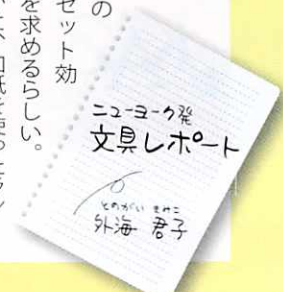 の
セット効
を求めるらしい。
ニューヨーク発
文具レポート
とのがい きみこ
外海 君子